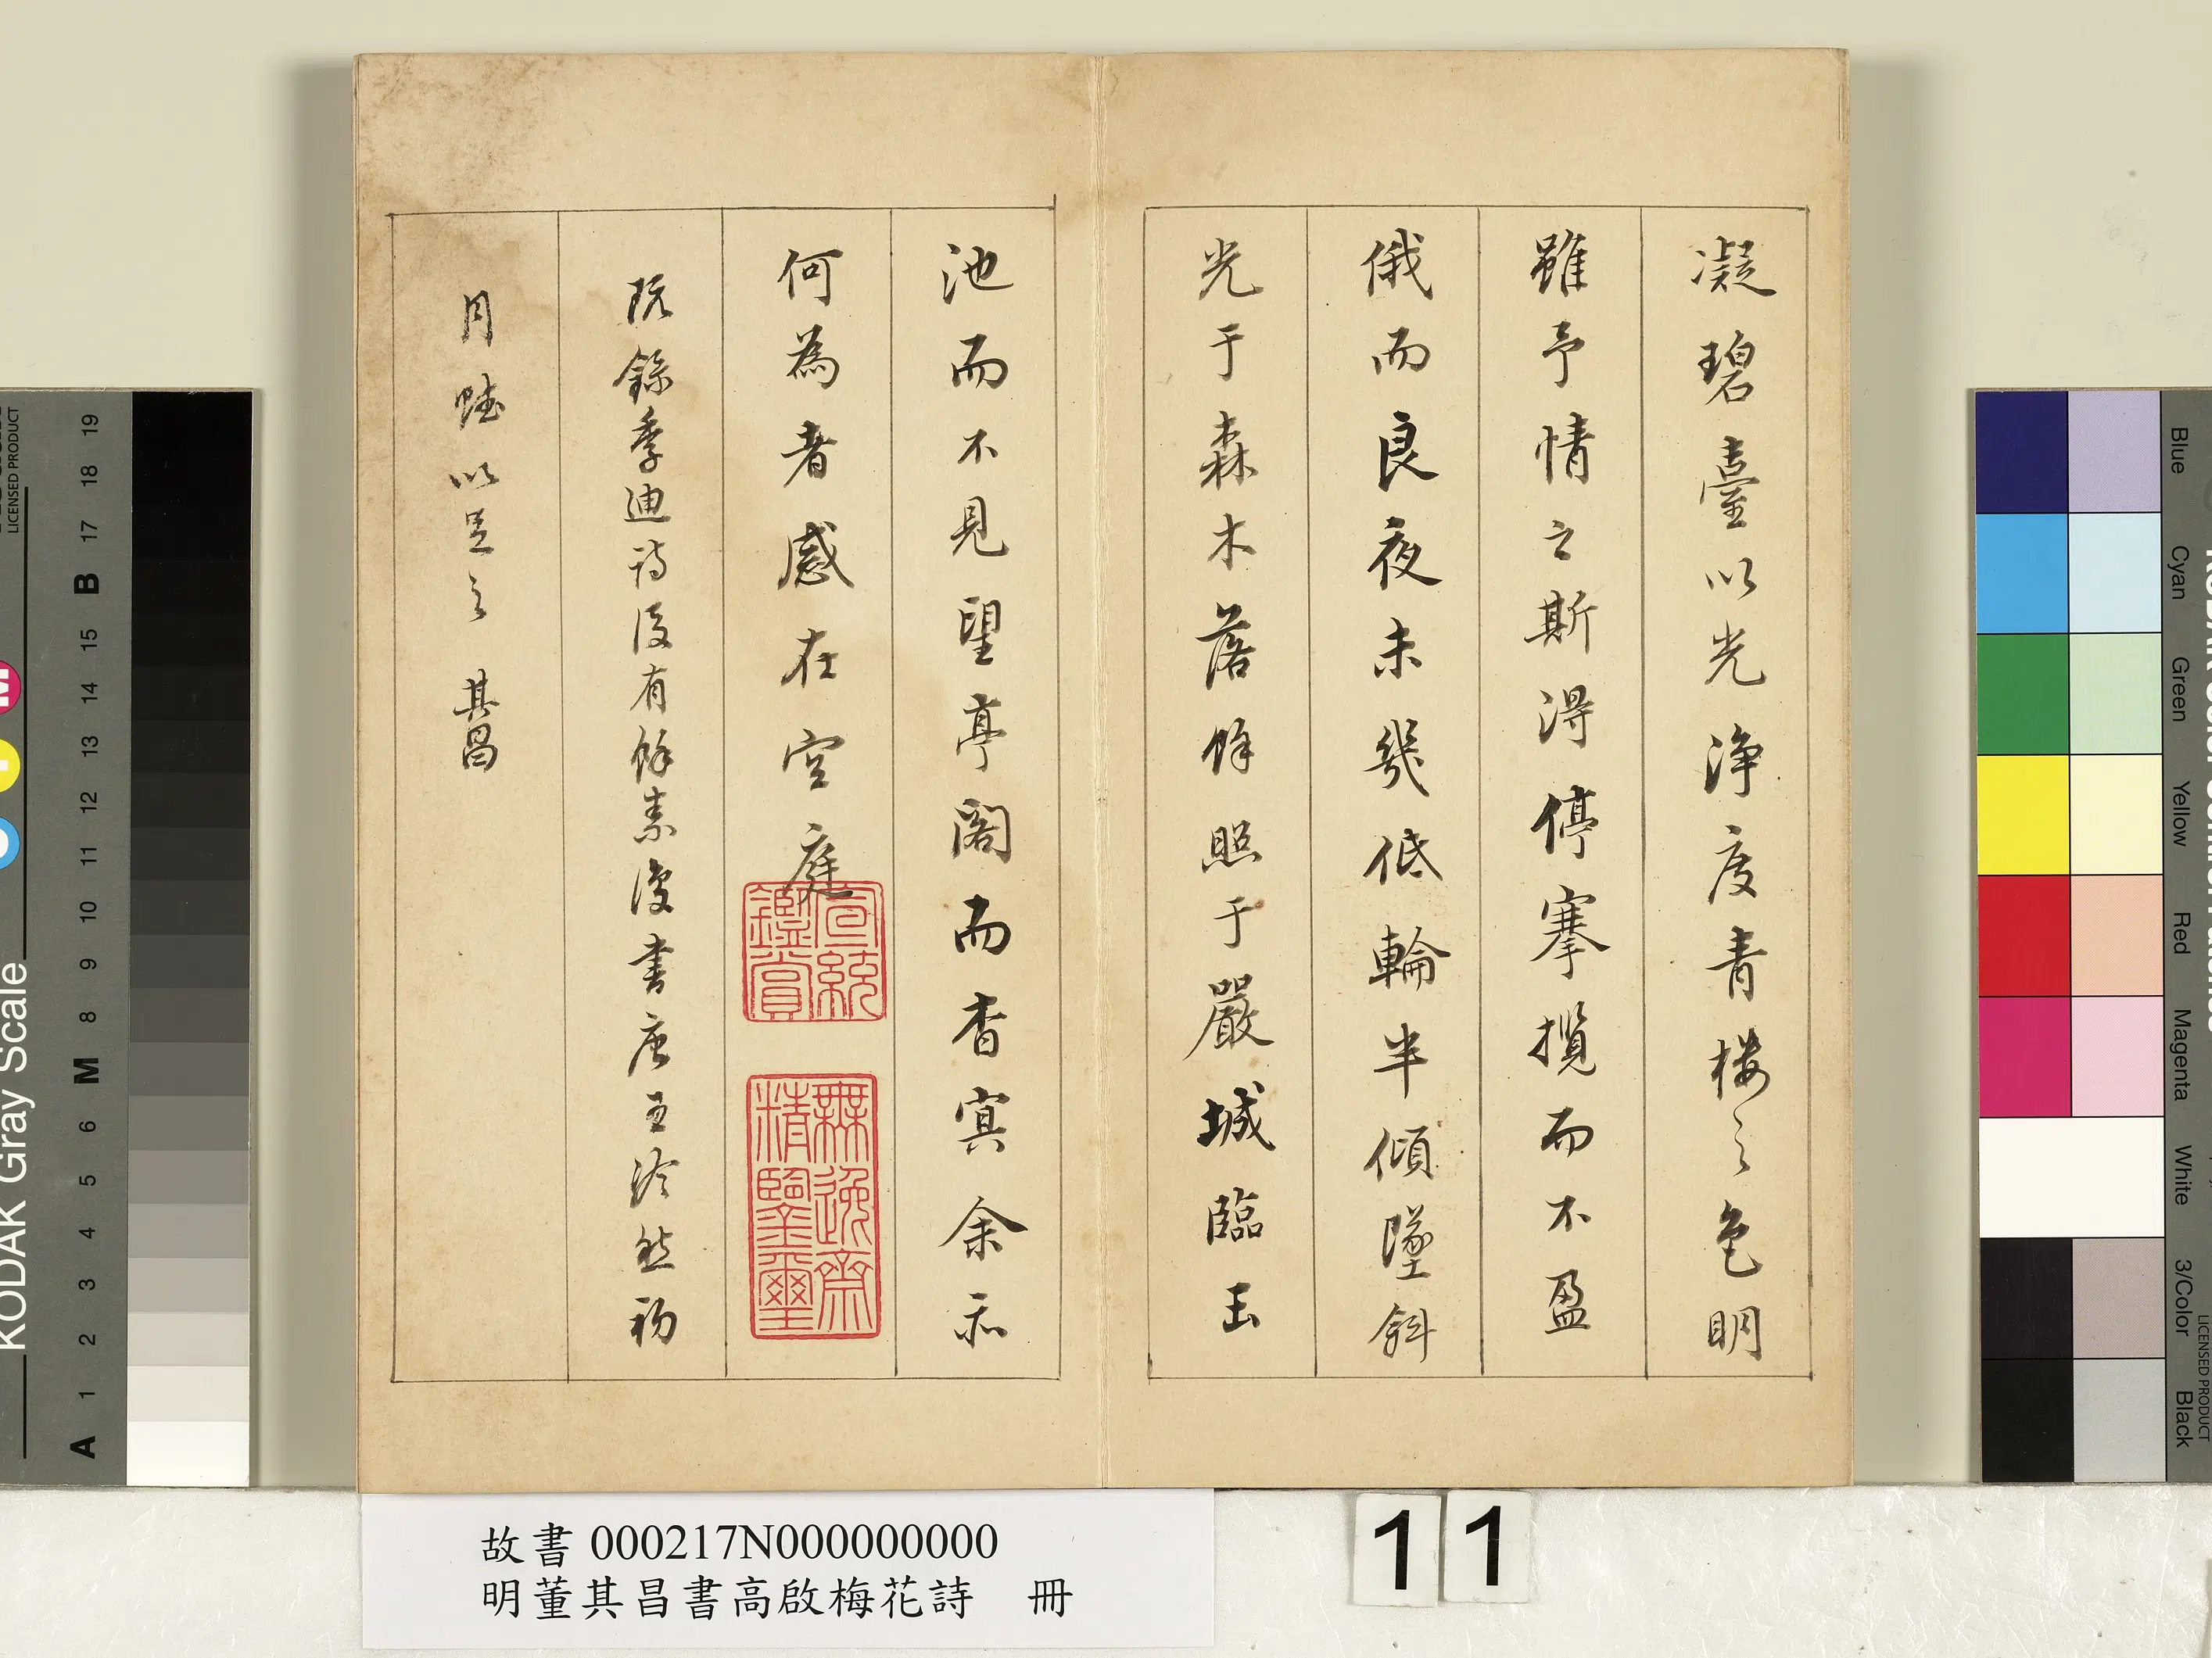 凝碧臺以光淨度青樓之色明
雖予情之斯得停搴攬而不盈
俄而良夜未幾低輪半傾墜斜
光于森木落餘照于嚴城臨玉
池而不見望亭閣而杳冥余亦
何為者感在空庭
既錄季迪詩後有餘素漫書唐王泠然初
月賦以足之 其昌
宣統
鑑賞
無逸齋
精鑒璽
故書 000217N000000000
明董其昌書高啟梅花詩 冊
11
KODAK Gray Scale
LICENSED PRODUCT
A 1 2 3 4 5 6 M 8 9 10 11 12 13 14 15 B 17 18 19
Blue
Cyan
Green
Yellow
Red
Magenta
White
3/Color
Black
LICENSED PRODUCT